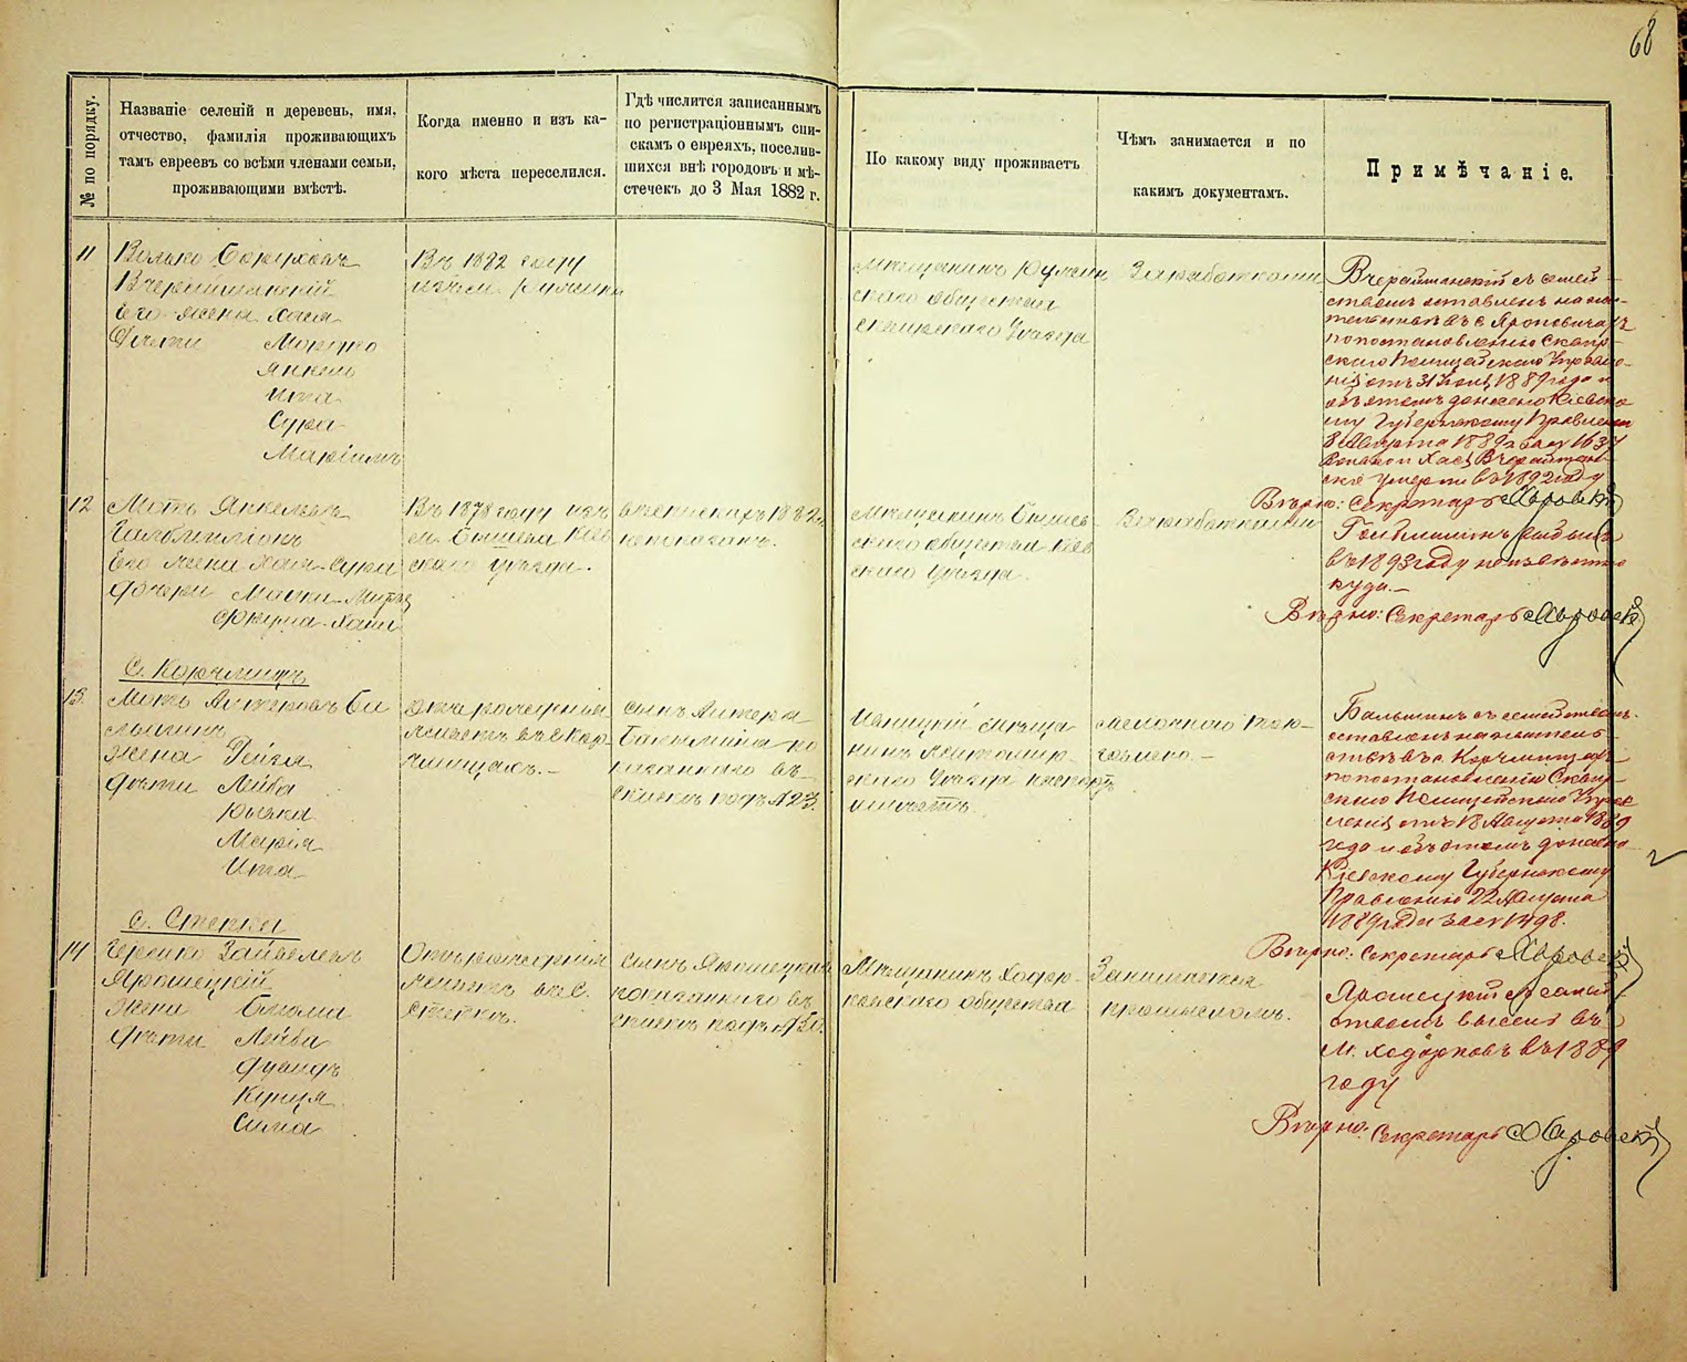 68
№ по порядку.
Названіе селеній и деревень, имя,
отчество, фамилія проживающихъ
тамъ евреевъ со всѣми членами семьи,
проживающими вмѣстѣ.
Когда именно и изъ ка-
кого мѣста переселился.
Гдѣ числится записаннымъ
по регистраціоннымъ спи-
скамъ о евреяхъ, поселив-
шихся внѣ городовъ и мѣ-
стечекъ до 3 Мая 1882 г.
По какому виду проживаетъ
Чѣмъ занимается и по
какимъ документамъ.
Примѣчаніе.
11
Волько Боруховъ
Вчерайшанскій
Его жена Хая
Дѣти Мордко
Янкель
Ита
Сура
Маріимъ
Въ 1882 году
изъ м. Ружина
Мѣщанинъ Ружин
скаго общества
Сквирскаго Уѣзда
Заработками
Вчерайшанскій съ семей-
ствомъ оставленъ на жи-
тельствѣ въ с Яроповичахъ
по постановленію Сквир-
скаго Полицейскаго Управле-
нія отъ 31 Іюля 1889 года и
объ этомъ донесено Кіевско
му Губернскому Правленію
8 Августа 1889 г за № 1637
Волько и Хася Вчерайшан-
скіе умерли въ 1892 году
Вѣрно: Секретарь
12
Мотъ Янкелевъ
Гальмиліонъ
Его жена Хая-Сура
Дочери Малка-Митля
Фрума-Хая
Въ 1878 году изъ
м. Бышева Кіев
скаго уѣзда.
въ спискахъ 1882 г.
непоказанъ.
Мѣщанинъ Бышев-
скаго общества Кіев
скаго Уѣзда.
Заработками
выбылъ
въ 1893 году неизвѣстно
куда.—
Вѣрно: Секретарь
С. Корчмищъ
13.
Мотъ Альтеровъ Ба
льминъ
Жена Рейзя
Дѣти Лейба
Рывка
Марія
Ита
Отъ рожденія
живетъ въ с Кор-
чмищахъ.—
сынъ Альтера
Бальмина по
казаннаго въ
спискѣ подъ № 23.
мѣща-
нинъ Житомир-
скаго Уѣзда паспортъ
имѣетъ.
мелочною тор-
говлею.—
Бальминъ съ семействомъ
оставленъ на житель-
ствѣ въ с. Корчмищахъ
по постановленію Сквир-
скаго Полицейскаго Управ
ленія отъ 18 Августа 1889
года и объ этомъ донесено
Кіевскому Губернскому
Правленію 22 Августа
1889 года за № 1798.
Вѣрно: Секретарь
с. Степки
14
Гершко Зайвелевъ
Ярошецкій
Жена Блюма
Дѣти Лейба
Фроимъ
Куня
Сима
Отъ рожденія
живетъ въ с.
Степкѣ.
сынъ Ярошецкаго
показаннаго въ
спискѣ подъ №
Мѣщанинъ Ходор-
ковскаго общества
Занимается
промысломъ.
Ярошецкій съ семей-
ствомъ выселенъ въ
м. Ходорковъ въ 1889
году
Вѣрно: Секретарь